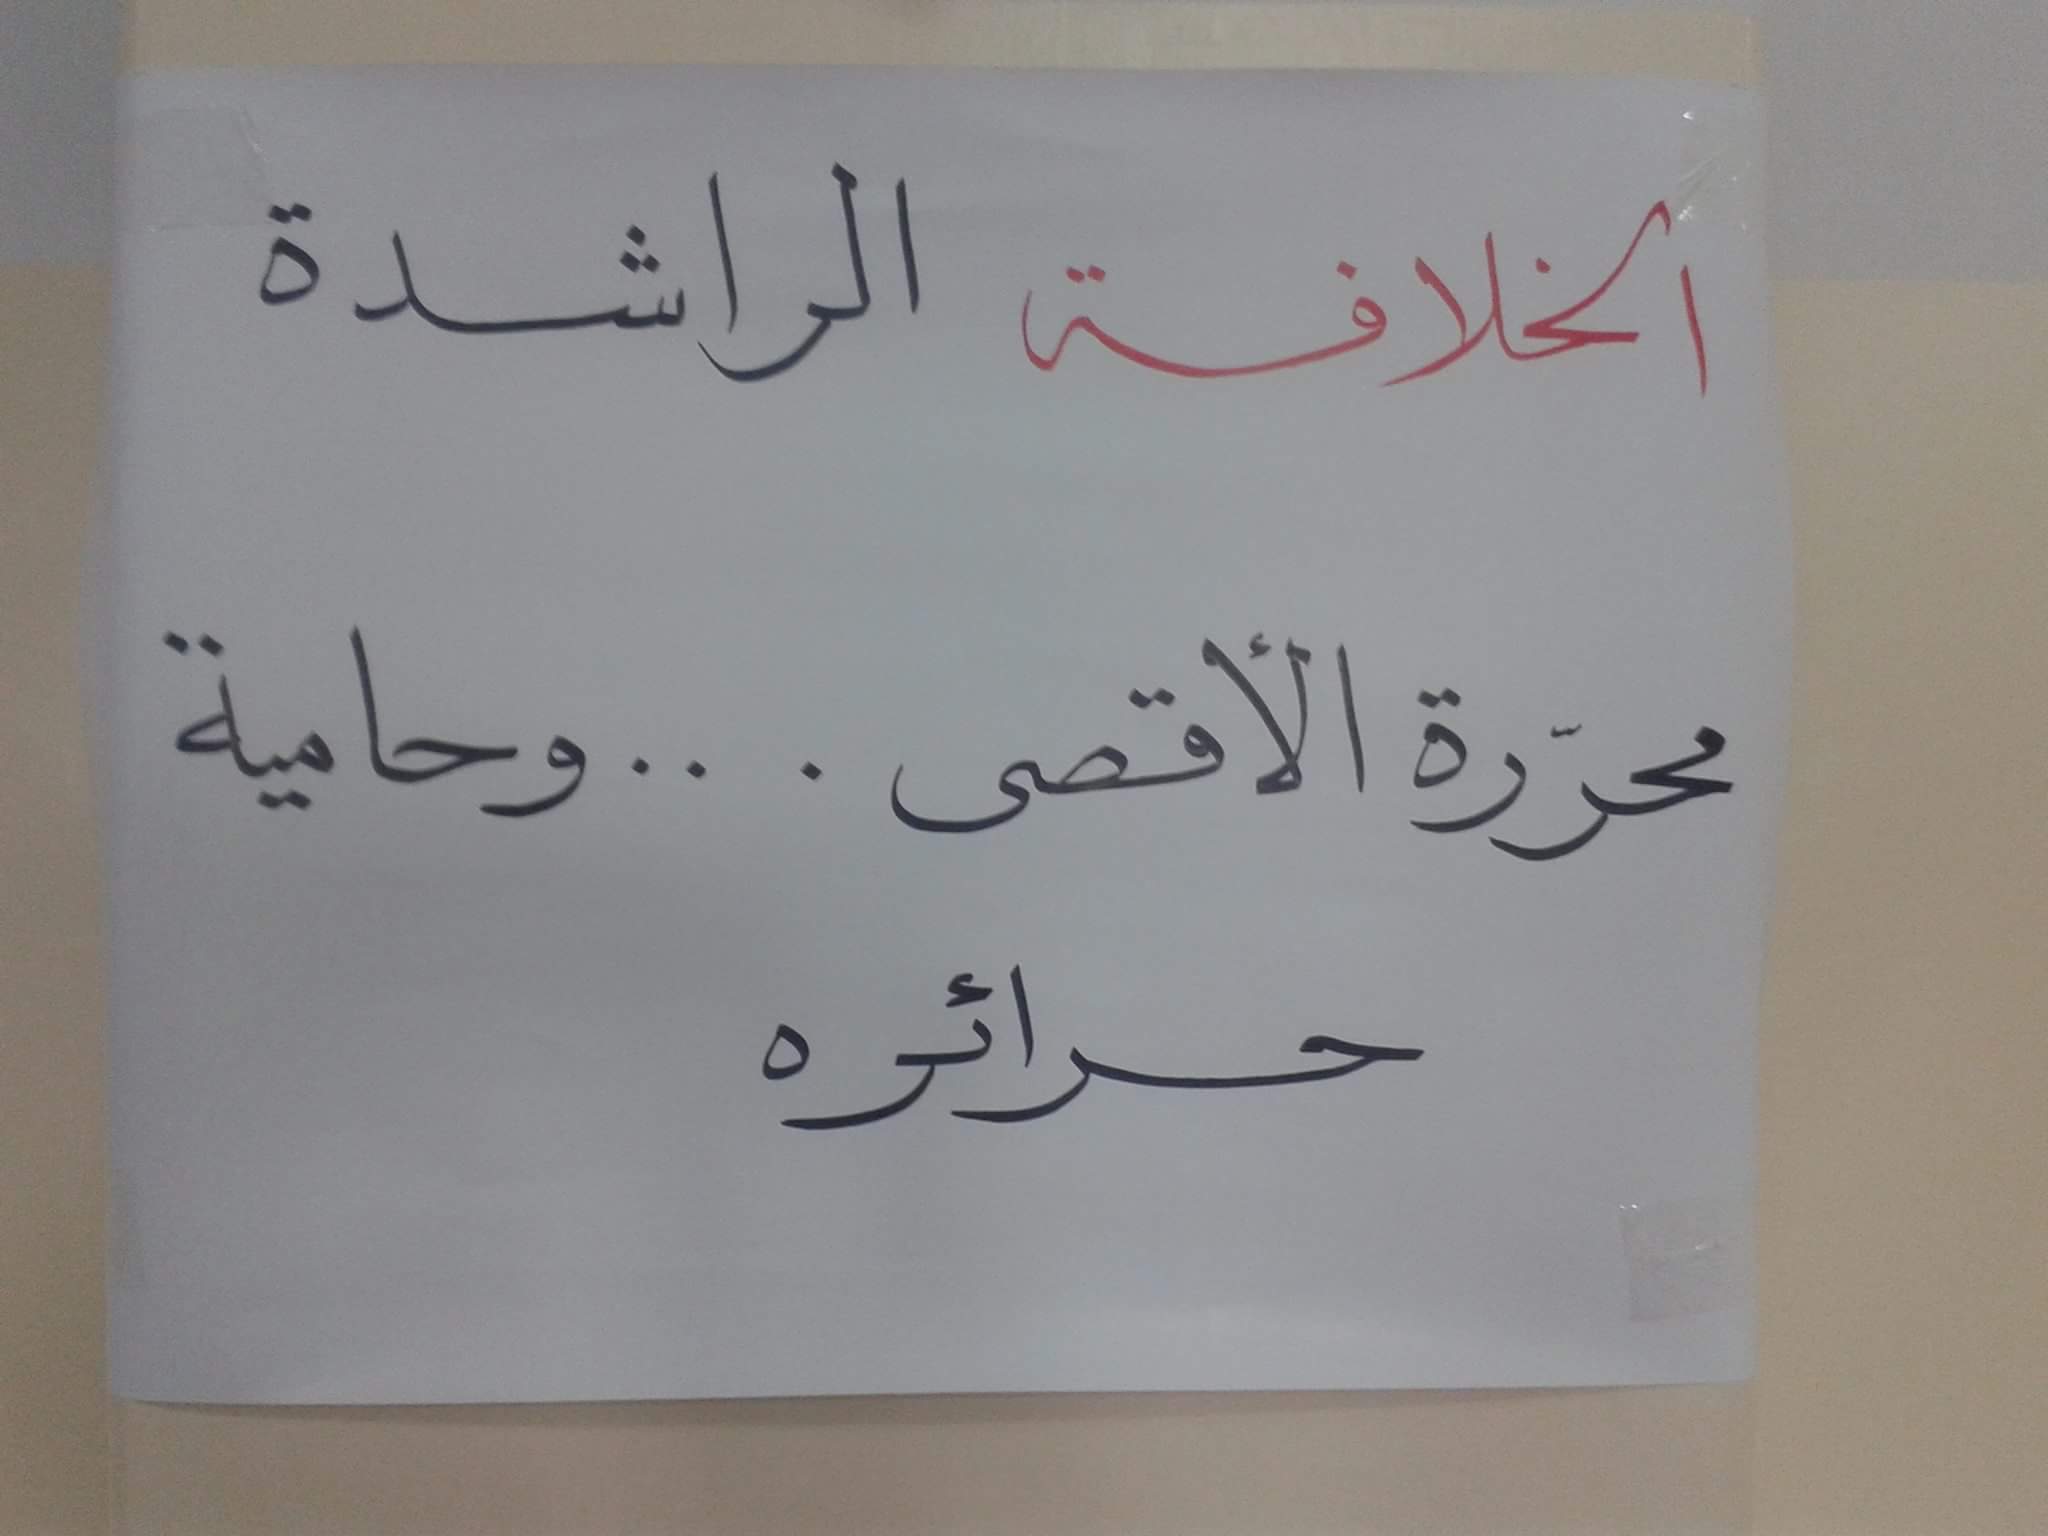 الخلافة الراشدة
محرّرة الأقصى . ..وحامية
حرائره